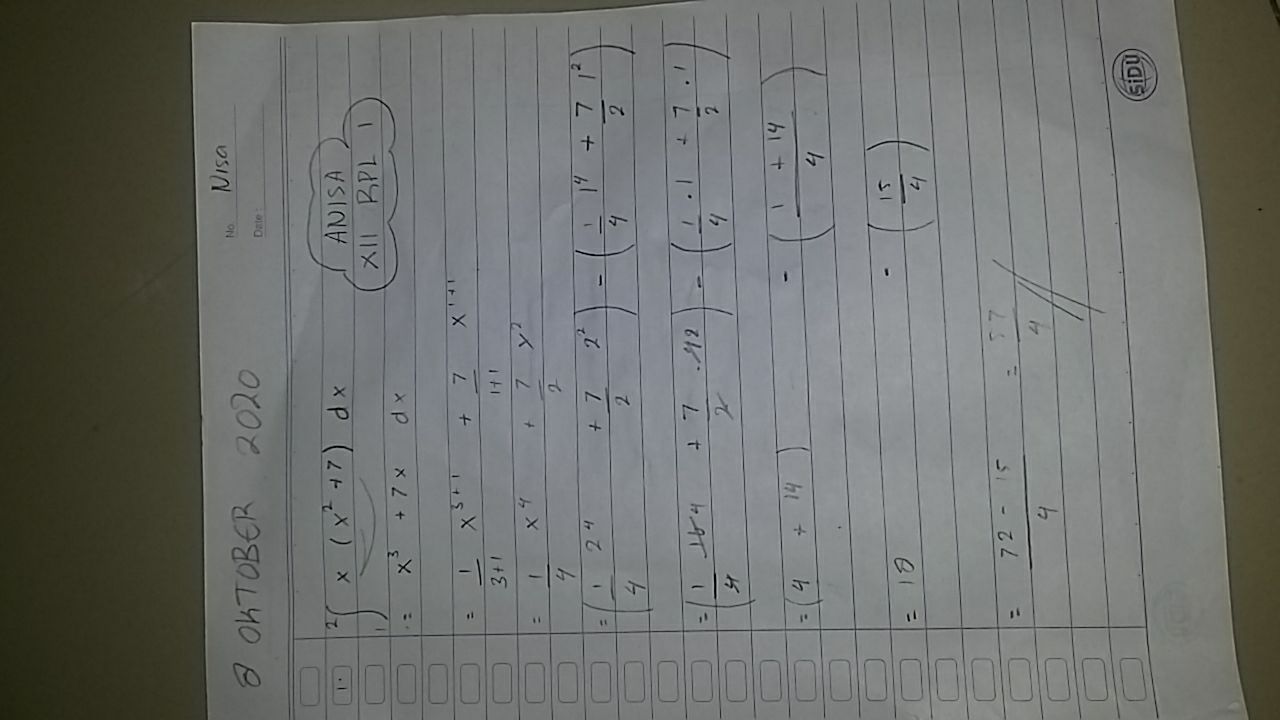 No. Nisa
Date:
8 OKTOBER 2020
ANISA
XII RPL 1
1. ²∫₁ x (x² + 7) dx
= x³ + 7x dx
= 1/(3+1) x³⁺¹ + 7/(1+1) x¹⁺¹
= 1/4 x⁴ + 7/2 x²
= (1/4 2⁴ + 7/2 2²) - (1/4 1⁴ + 7/2 1²)
= (1/4 164 + 7/2 . 42) - (1/4 . 1 + 7/2 . 1)
= (4 + 14) - (1 + 14/4)
= 18 - (15/4)
= 72 - 15/4 = 57/4
SiDU